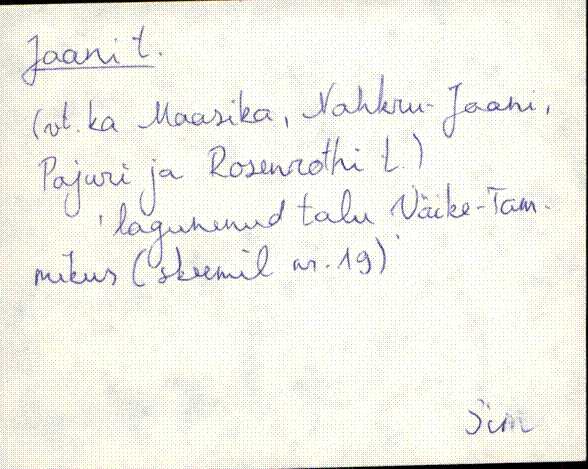 Jaani t.
(vt. ka Maasika, Nahkru-Jaani,
Pajuri ja Rosenrothi t.)
'lagunenud talu Väike-Tam-
mikus (skeemil nr. 19)'